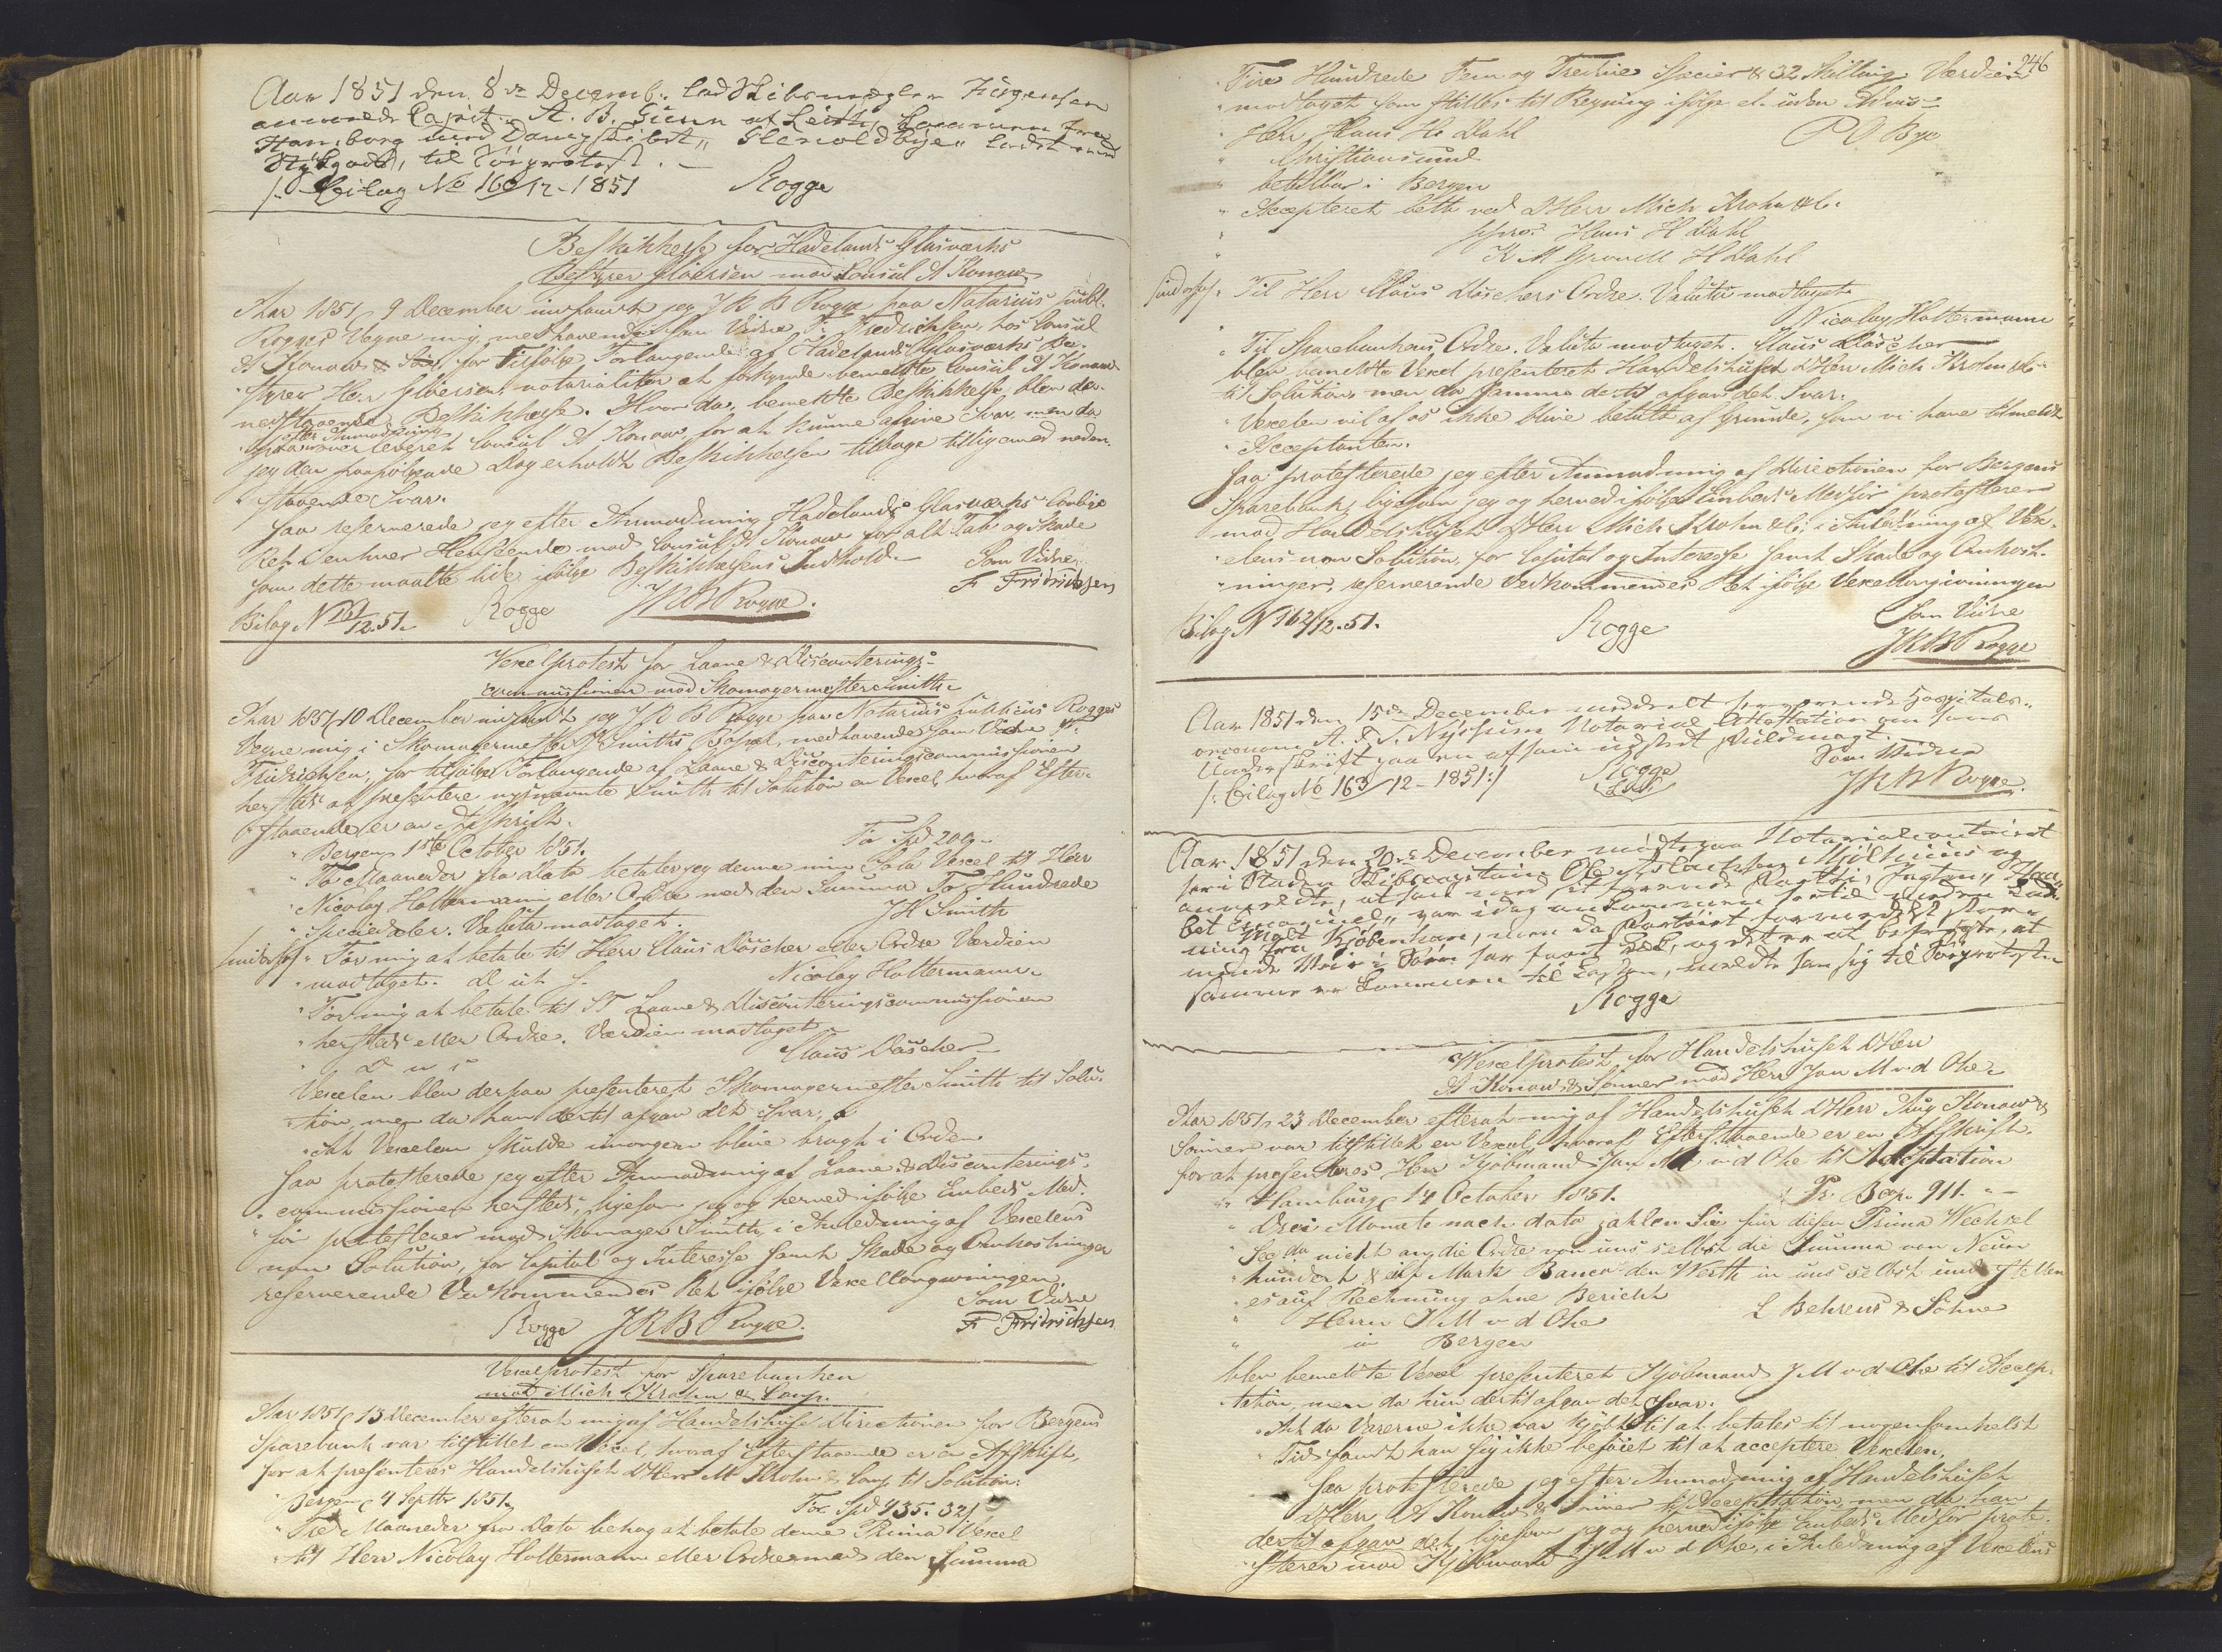 Aar 1851 den 8de Decemb. lod Skibsmægler Jürgensen
anmelde Capit. A. B. Gunn af Leith, kommen fra
Hamborg med Dampskibet, Glenoldbye ladet med
Stykgods, til Søeprotest.
/: Bilag No 160/12-1851 Rogge
Beskikkelse for Hadelands Glasværks
Bestyrer Gløersen mod Consul A Konow
Aar 1851, 9 December indfandt jeg J R B Rogge paa Notarius publ.
Rogges Vegne mig, medhavende som Vidne F. Fredrichsen, hos Consul
A Konow & for Tilfølge Forlangende af Hadelands Glasværks Be-
styrer Herr Gløersen, notorialiter at forkynde bemeldte Consul A Konow
nedstaaende Beskikkelse. Hvor da, bemeldte Beskikkelse blev der-
efter Anmodning
paa overleveret Consul A Konow, for at kunne afgive Svar, men da
jeg den paafølgende Dag erholdt Beskikkelsen tilbage tilligemed neden-
staaende Svar.
Saa reserverede jeg efter Anmodning Hadelands Glasværks lovlige
Ret Denhver Henseende mod Consul A Konow for alt Tab og Skade
som dette maatte lide ifølge Beskikkelsens Indhold. Som Vidne
Bilag N 161/12.51. Rogge JRB Rogge. F Fridrichsen
Vexelprotest for Laane & Disconterings-
commissionen mod Skomagermester Smith
Aar 1851, 10 December indfandt jeg J R B Rogge paa Notarius publicus Rogges
Vegne mig i Skomagermester Smiths Bopæl, medhavende som Vidne F.
Fridrichsen, for tilfølge Forlangende af Laane & Disconteringscommissionen
herstæds at præsentere nysnævnte Smith til Solution en Vexel, hvoraf Efter-
staaende er en Afskrift.
" Bergen 1ste October 1851. For Spd 200,-
" To Maaneder fra Dato betaler jeg denne min Sola Vexel til Herr
" Nicolay Holtermann eller Ordre med den Summa To Hundrede
" Speciedaler. Valuta modtaget. J H Smith
Indorsof " For mig at betale til Herr Claus Döscher eller Ordre Værdien
" modtaget. D ut s. Nicolay Holtermann.
" For mig at betale til ST Laane & Disconteringscommissionen
" herstæds eller Ordre. Værdien modtaget
" D u s Claus Döscher
Vexelen blev derpaa præsenteret Skomagermester Smith til Solu-
tion, men da han dertil afgav det Svar,
" At Vexelen skulde imorgen blive bragt i Orden
Saa protesterede jeg efter Anmodning af Laane & Disconterings-
commissionen herstæds, ligesom jeg og herved ifølge Embeds Med-
før protesterer mod Skomager Smith, i Anledning af Vexelens
non Solution, for Capital og Interesse samt Skade og Omkostninger
reserverende Vedkommendes Ret ifølge Vexellovgivningen.
Som Vidne
Rogge JRB Rogge. F Fridrichsen
Vexelprotest for Sparebanken
mod Mich Krohn & Comp.
Aar 1851, 13 December efterat mig af Handelshuset Directionen for Bergens
Sparebank var tilstillet en Vexel, hvoraf Efterstaaende er en Afskrift,
for at præsenteres Handelshuset DHerr M Krohn & Comp til Solution.
" Bergen, 4 Septbr 1851, For Spd 435. 32/
" Tre Maaneder fra Dato behag at betale denne Prima Vexel
" til Herr Nicolay Holtermann eller Ordre med den Summa
246
" Fire Hundrede Fem og Tredive Specier & 32 Skilling Værdien
" modtaget som stilles til Regning ifølge el. uden Advis
" Herr Hans H. Dahl P O Bye
" Christiansund
" betalbar i Bergen
" Accepteret bethl ved DHerr Mich Krohn & C.
" ppro: Hans H Dahl
" K M Grovell H Dahl
Indorsof. Til Herr Claus Döschers Ordre. Valuta modtaget.
" Nicolay Holtermann
" Til Sparebankens Ordre. Valuta modtaget. Claus Döscher
blev bemeldte Vexel presenteret Handelshuset DHerr Mich Krohn & C.
til Solution, men da Samme dertil afgav det Svar.
" Vexelen vil af os ikke blive betalt af Grunde, som vi have tilmeldt
" Acceptanten.
Saa protesterede jeg efter Anmodning af Directionen for Bergens
Sparebank, ligesom jeg og herved ifølge Embeds Medfør protesterer
mod Handelshuset DHerr Mich Krohn & C. i Anledning af Vex-
elens non Solution, for Capital og Interesse samt Skade og Omkost-
ninger, reserverende Vedkommendes Ret ifølge Vexellovgivningen
Som Vidne
Bilag N 162/12.51. Rogge JRB Rogge
Aar 1851 den 15de December meddeelt herværende Hospitals-
oeconom A. F. S. Nyssum Notarial Attestation om hans
Underskrift paa en af ham udstedt Fuldmagt. Som Vidne
/: Bilag No 163/12-1851 :/ Rogge JRB Rogge.
Aar 1851 den 20de December mødte paa Notarialcontoiret
her i Staden Skibscapitain Ole Mjølhuus og
anmeldte, at han med sit førende Fartøi, Jagten, Haa-
bet Emanuel, var idag ankommen hertil med en Lad-
ning Malt fra Kjøbenhavn, men da Fartøiet formedelst stor-
mende Veir i Søen har faaet Læk, og det er at befrygte, at
samme er kommen til Lasten, meldte han sig til Søeprotest
Rogge
Wexelprotest for Handelshuset DHerr
A Konow & Sønner mod Herr Jan M v d Ohe.
Aar 1851, 23 December efterat mig af Handelshuset DHerr Aug Konow &
Sønner var tilstillet en Vexel, hvoraf Efterstaaende er en Afskrift,
for at præsenteres Herr Kjøbmand Jan M v d Ohe til Acceptation
" Hamburg, 14 October 1851. Pr. Bco. 911. "-
" Drei Monate nach dato zahlen Sie für diesen Prima Wechsel
" Sec da nicht an die Ordre von uns selbst die Summa von Neun
" hundert & eilf Mark Banco den Werth in uns selbst und stellen
" es auf Rechnung ohne Bericht
" Herrn J M v d Ohe L Behrens & Söhne
" in Bergen
blev bemeldte Vexel præsenteret Kjøbmand J M v d Ohe til Accep-
tation, men da han dertil afgav det Svar.
" At da Varerne ikke var kjøbt til at betales til nogensomhelst
" Tid fandt han sig ikke beføiet til at acceptere Vexelen,
Saa protesterede jeg efter Anmodning af Handelshuset
DHerr A Konow & Sønner til Acceptation, men da han
dertil afgav det, ligesom jeg og herved ifølge Embeds Medfør prote-
sterer mod Kjøbmand J M v d Ohe, i Anledning af Vexelens